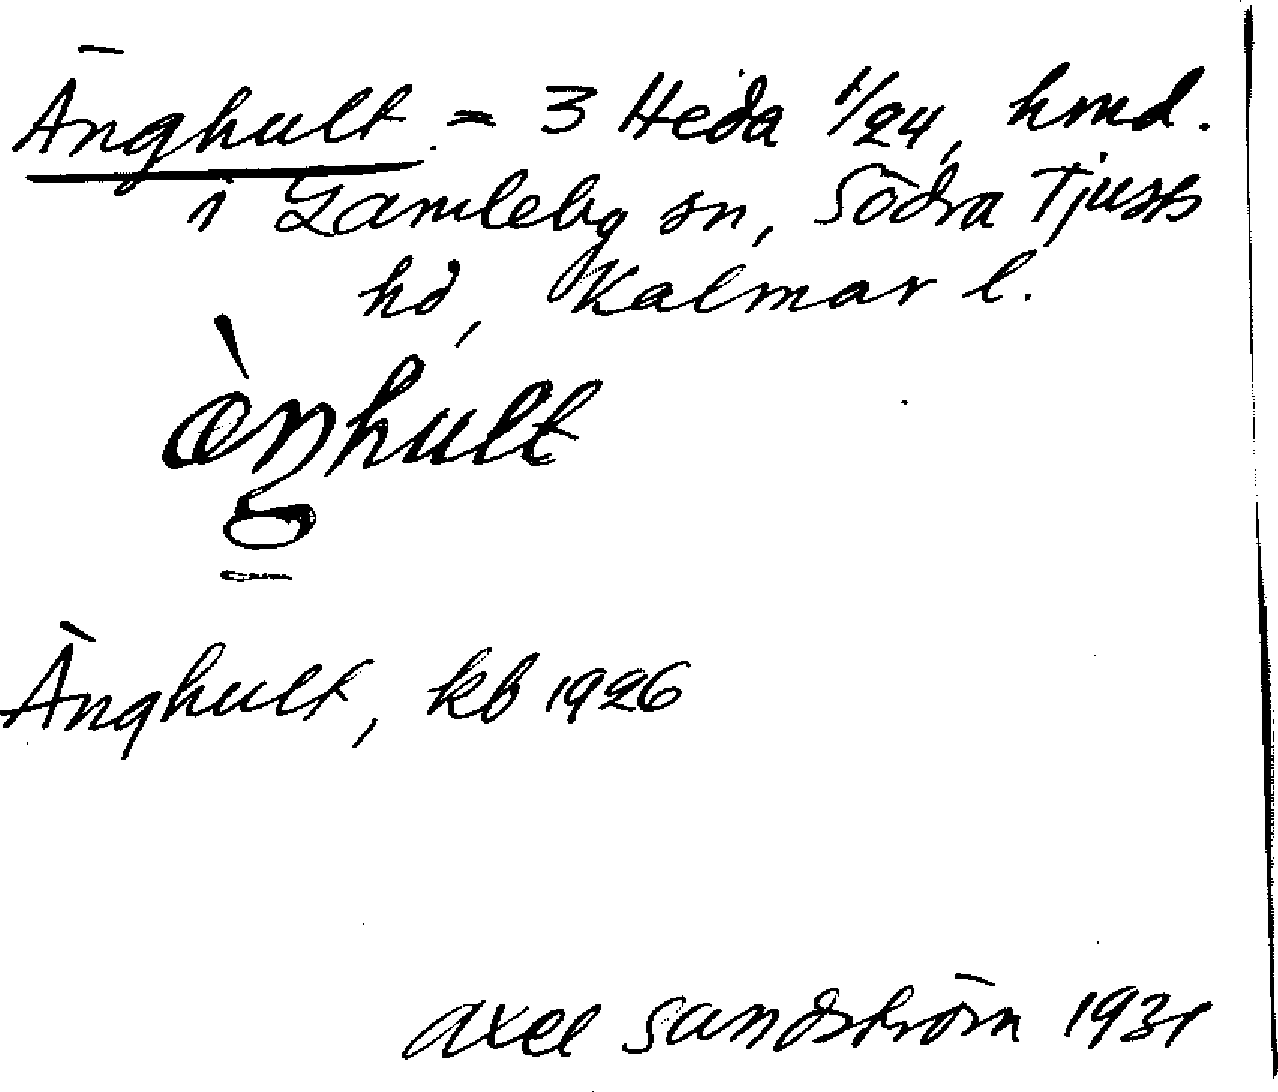 Änghult = 3 Heda 1/24, hmd.
i Gamleby sn, Södra Tjusts
hd, Kalmar l.
Änghult, kb 1926
Axel Sandström 1931